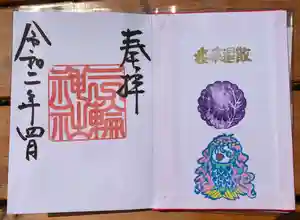 奉拝
三輪
神社
令和二年四月
退散